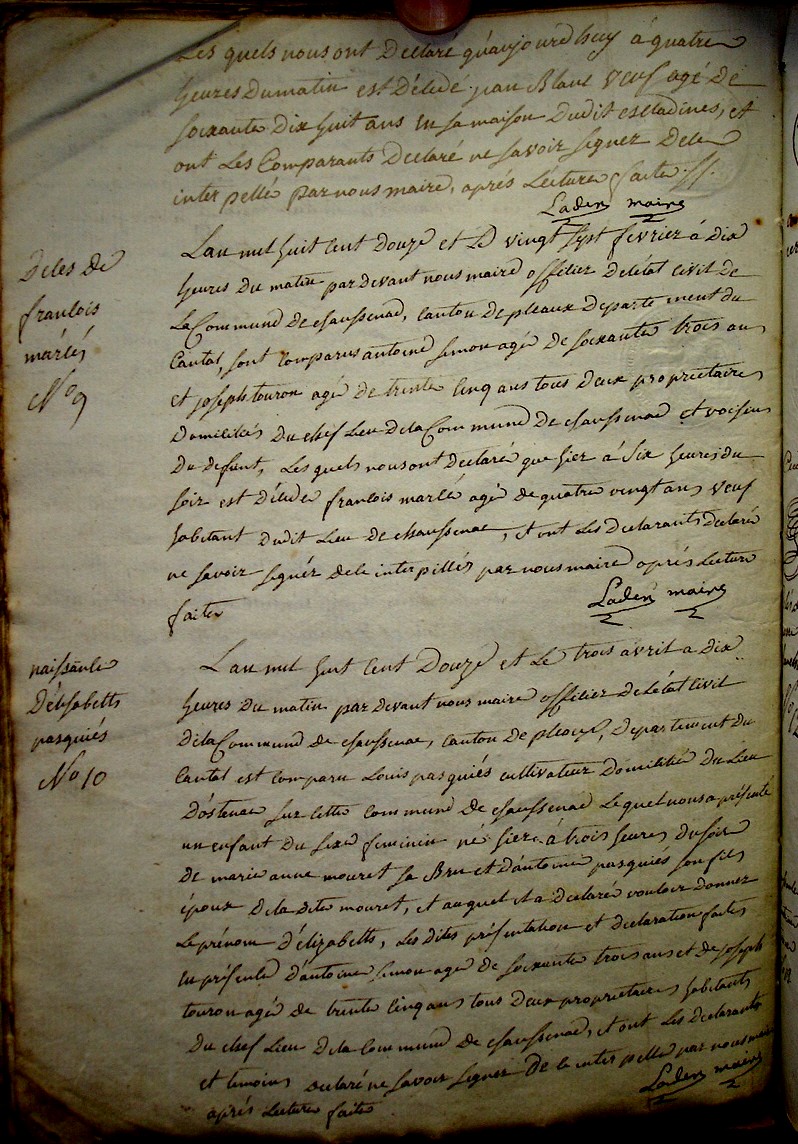 Les quels nous ont Declaré qu'aujourd'huy à quatre
heures Du matin est Décédé jean Blanc veuf agé De
soixante Dix huit ans en sa maison Dudit escladines, et
ont Les Comparants Declaré ne savoir signer De ce
interpellé par nous maire, aprés Lecture faite
Laden maire
Décès De
francois
marlés
No 9
L'an mil huit cent Douze et Le vingt sept fevrier à Dix
heures Du matin par Devant nous maire officier De létat civil De
La Commune De chaussenac, canton De pleaux Departement du
Cantal, sont comparus antoine simon agé De soixante trois ans
et joseph touron agé De trente cinq ans tous Deux proprietaires
Domiciliés Du chef Lieu De la Commune De chaussenac et voisins
Du defunt, Les quels nous ont declaré que hier à six heures du
soir est Décédé francois marlés agé de quatre vingt ans veuf
habitant dudit Lieu De chaussenac, et ont Les Declarants declaré
ne savoir signér de ce interpellés par nous maire aprés Lecture
faite
Laden maire
naissance
D'élisabeth
pasquiés
No 10
L'an mil huit cent Douze et Le trois avril a Dix
heures Du matin par Devant nous maire officier De létat civil
De la Commune De chaussenac, canton De pleaux, Departement Du
Cantal est comparu Louis pasquiés cultivateur Domicilié Du Lieu
D'ostenac sur cette commune De chaussenac Le quel nous a présenté
un enfant Du sexe feminin né hier à trois heures Du soir
De marie anne mouret sa Bru et D'antoine pasquiés son fils
époux De la dite mouret, et auquel il a declaré vouloir Donner
Le prénom D'élizabeth, Les dites présentation et declaration faites
en présence D'antoine simon agé De soixante trois ans et De joseph
touron agé De trente cinq ans tous Deux proprietaires habitants
Du chef Lieu De la Commune De chaussenac, et ont Les Declarants
et temoins declaré ne savoir signer De ce interpellé par nous maire
aprés Lecture faite
Laden maire